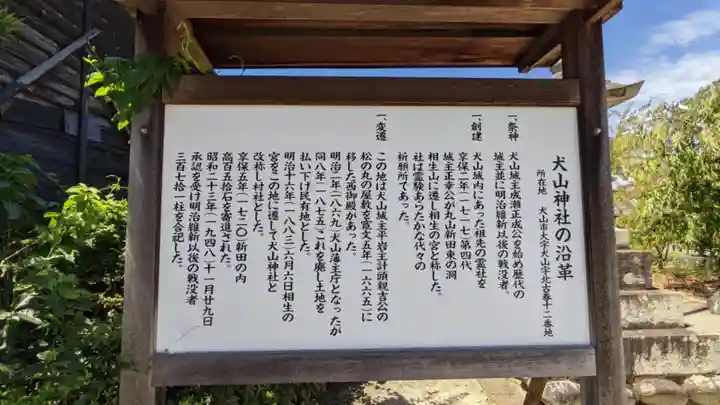 犬山神社の沿革
所在地　犬山市大字犬山字北古券十二番地
一、祭神　犬山城主成瀬正成公を始め歴代の
城主並に明治維新以後の戦没者。
一、創建　犬山城内にあった祖先の霊社を
享保二年（一七一七）第四代
城主正幸公が丸山新田東の洞
相生山に遷し相生の宮と称した。
社は霊験あらたかな代々の
祈願所であった。
一、変遷　この地は犬山城主平岩主計頭親吉公の
松の丸の屋敷を寛文五年（一六六五）に
移した西御殿があった。
明治二年（一八六九）犬山藩主庁となったが
同八年（一八七五）これを廃し土地を
払い下げ民有地とした。
明治十六年（一八八三）六月六日相生の
宮をこの地に遷して犬山神社と
改称し村社とした。
享保五年（一七二〇）新田の内
高百五拾石を寄進された。
昭和二十三年（一九四八）十一月廿九日
承認を受け明治維新以後の戦没者
三百七拾一柱を合祀した。